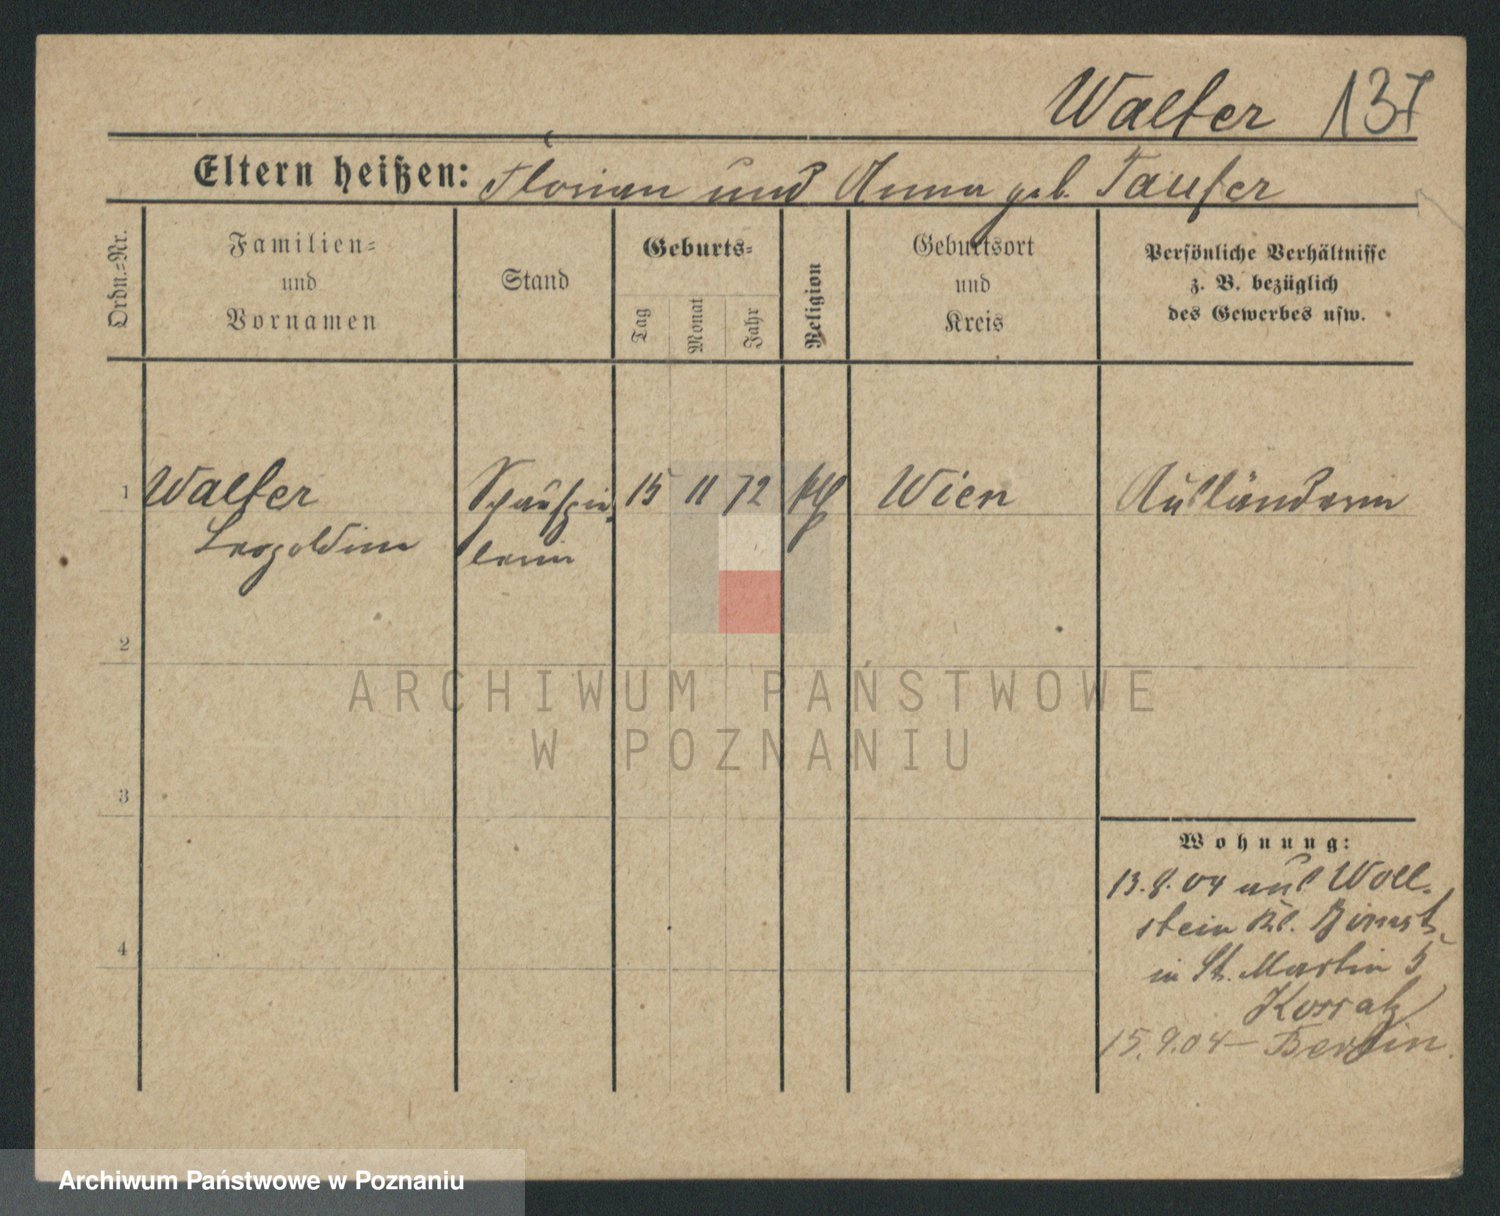 Walter 137
Eltern heißen: Florian und Anna geb. Taufer
Ordn.=Nr.
Familien=
und
Vornamen
Stand
Geburts=
Tag
Monat
Jahr
Religion
Geburtsort
und
Kreis
Persönliche Verhältnisse
z. B. bezüglich
des Gewerbes usw.
1 Walter Schauspie= 15 11 72 kth Wien Ausländerin
Leopoldine lerin
2
3
4
Wohnung:
13.8.04 aus Woll=
stein Kr. Bomst
in St. Martin 5
15.9.04 — Berlin
ARCHIWUM PAŃSTWOWE
W POZNANIU
Archiwum Państwowe w Poznaniu